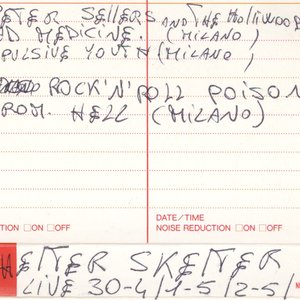 PETER SELLERS AND THE HOLLIWOOD
MEDICINE. (MILANO)
PULSIVE YOUTH (MILANO)
ROCK'N'ROLL POISON
FROM. HELL (MILANO)
TION □ON □OFF
DATE/TIME
NOISE REDUCTION □ON □OFF
HELTER SKELTER
LIVE 30-4/1-5/2-5/